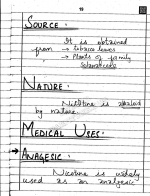 Source.
It is obtained
from → Tobacco leaves
→ Plants of family
Solanaceae
Nature.
Nicotine is alkaloid
by nature.
Medical Uses.
→ Anagesic.
Nicotine is widely
used as an analgesic